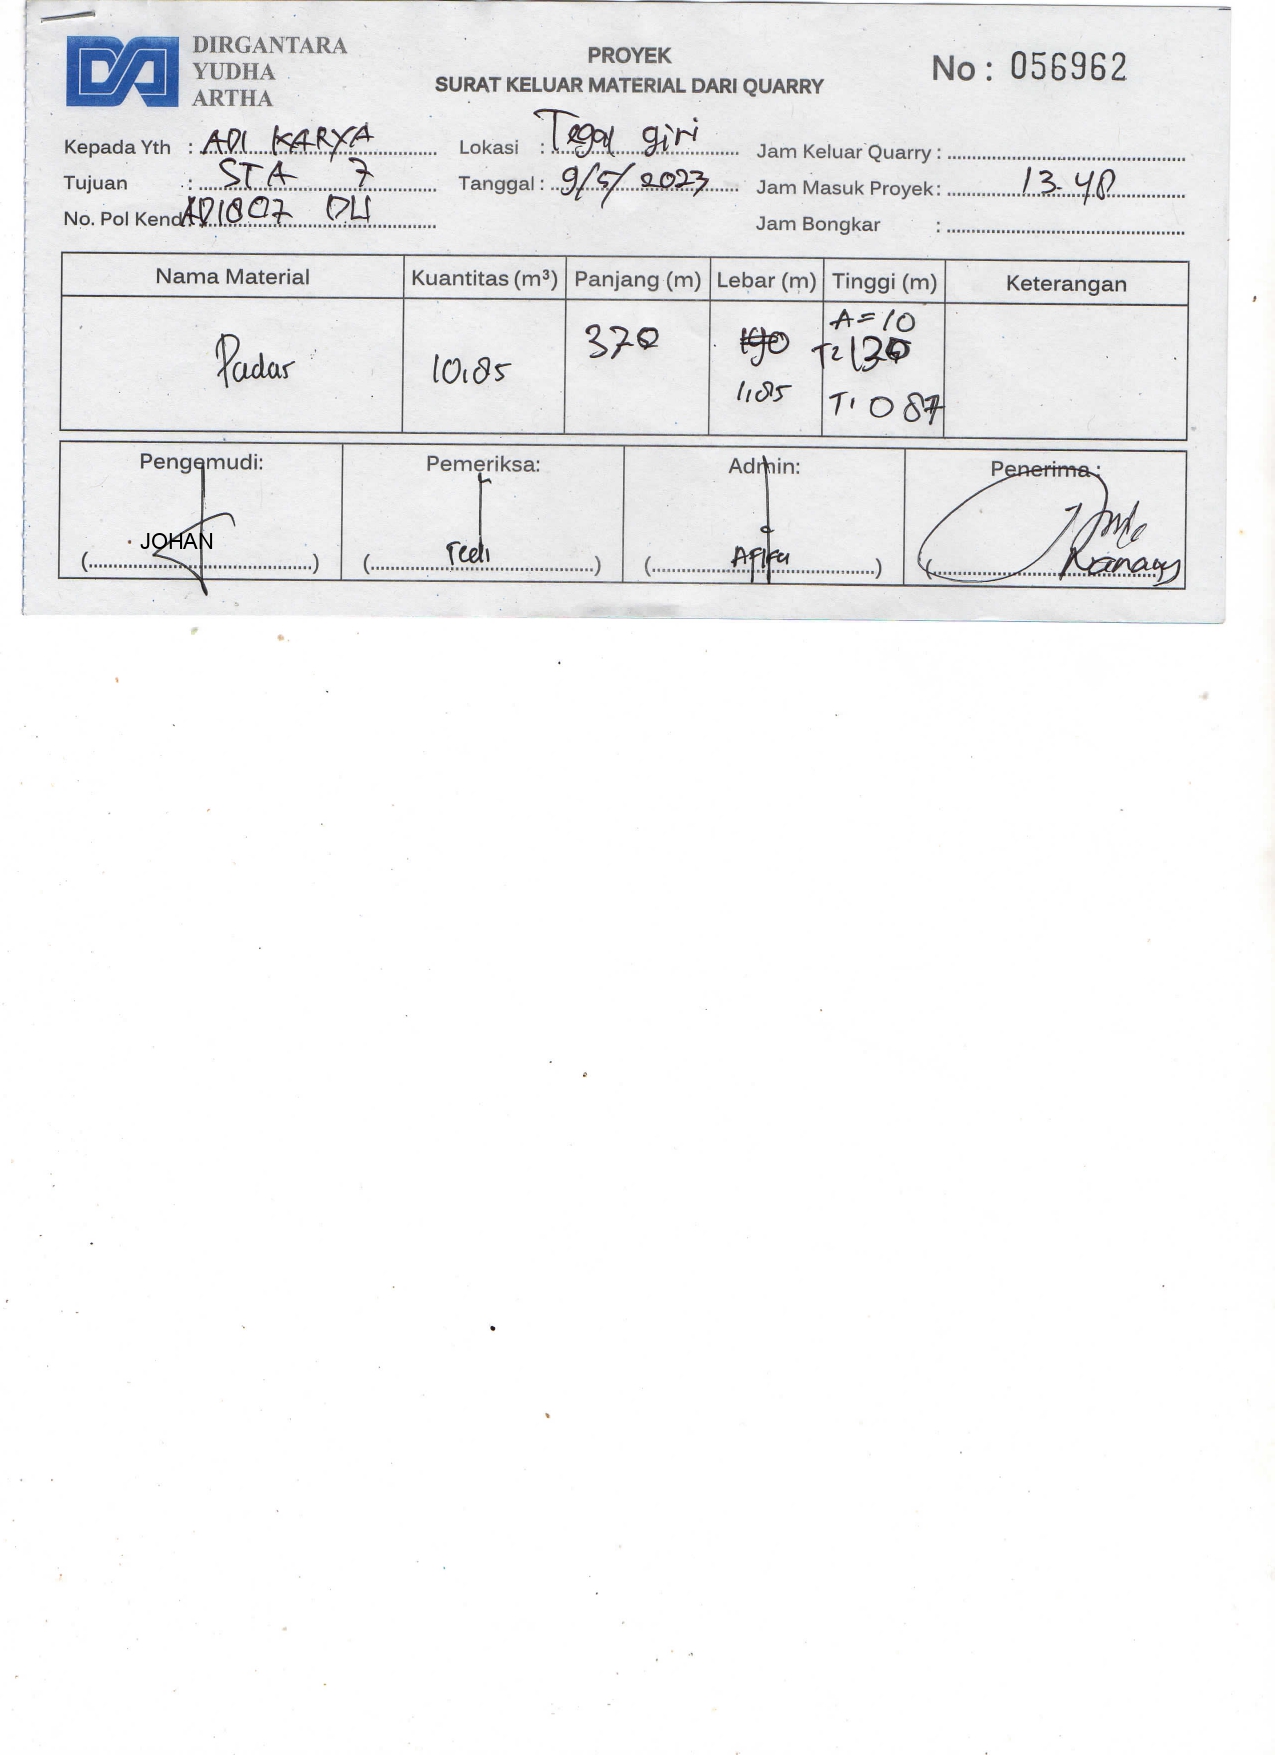 DIRGANTARA
YUDHA
ARTHA
PROYEK
SURAT KELUAR MATERIAL DARI QUARRY
No : 056962
Kepada Yth : ADI KARYA
Tujuan : STA 7
No. Pol Kend AD1807 DU
Lokasi : Tegal giri
Tanggal : 9/5/2023
Jam Keluar Quarry :
Jam Masuk Proyek : 13.40
Jam Bongkar :
Nama Material Kuantitas (m³) Panjang (m) Lebar (m) Tinggi (m) Keterangan
Padas 10,85 370 1,85
A=10
T2 130
T1 0 87
Pengemudi: Pemeriksa: Admin: Penerima :
JOHAN Tedi Afifa